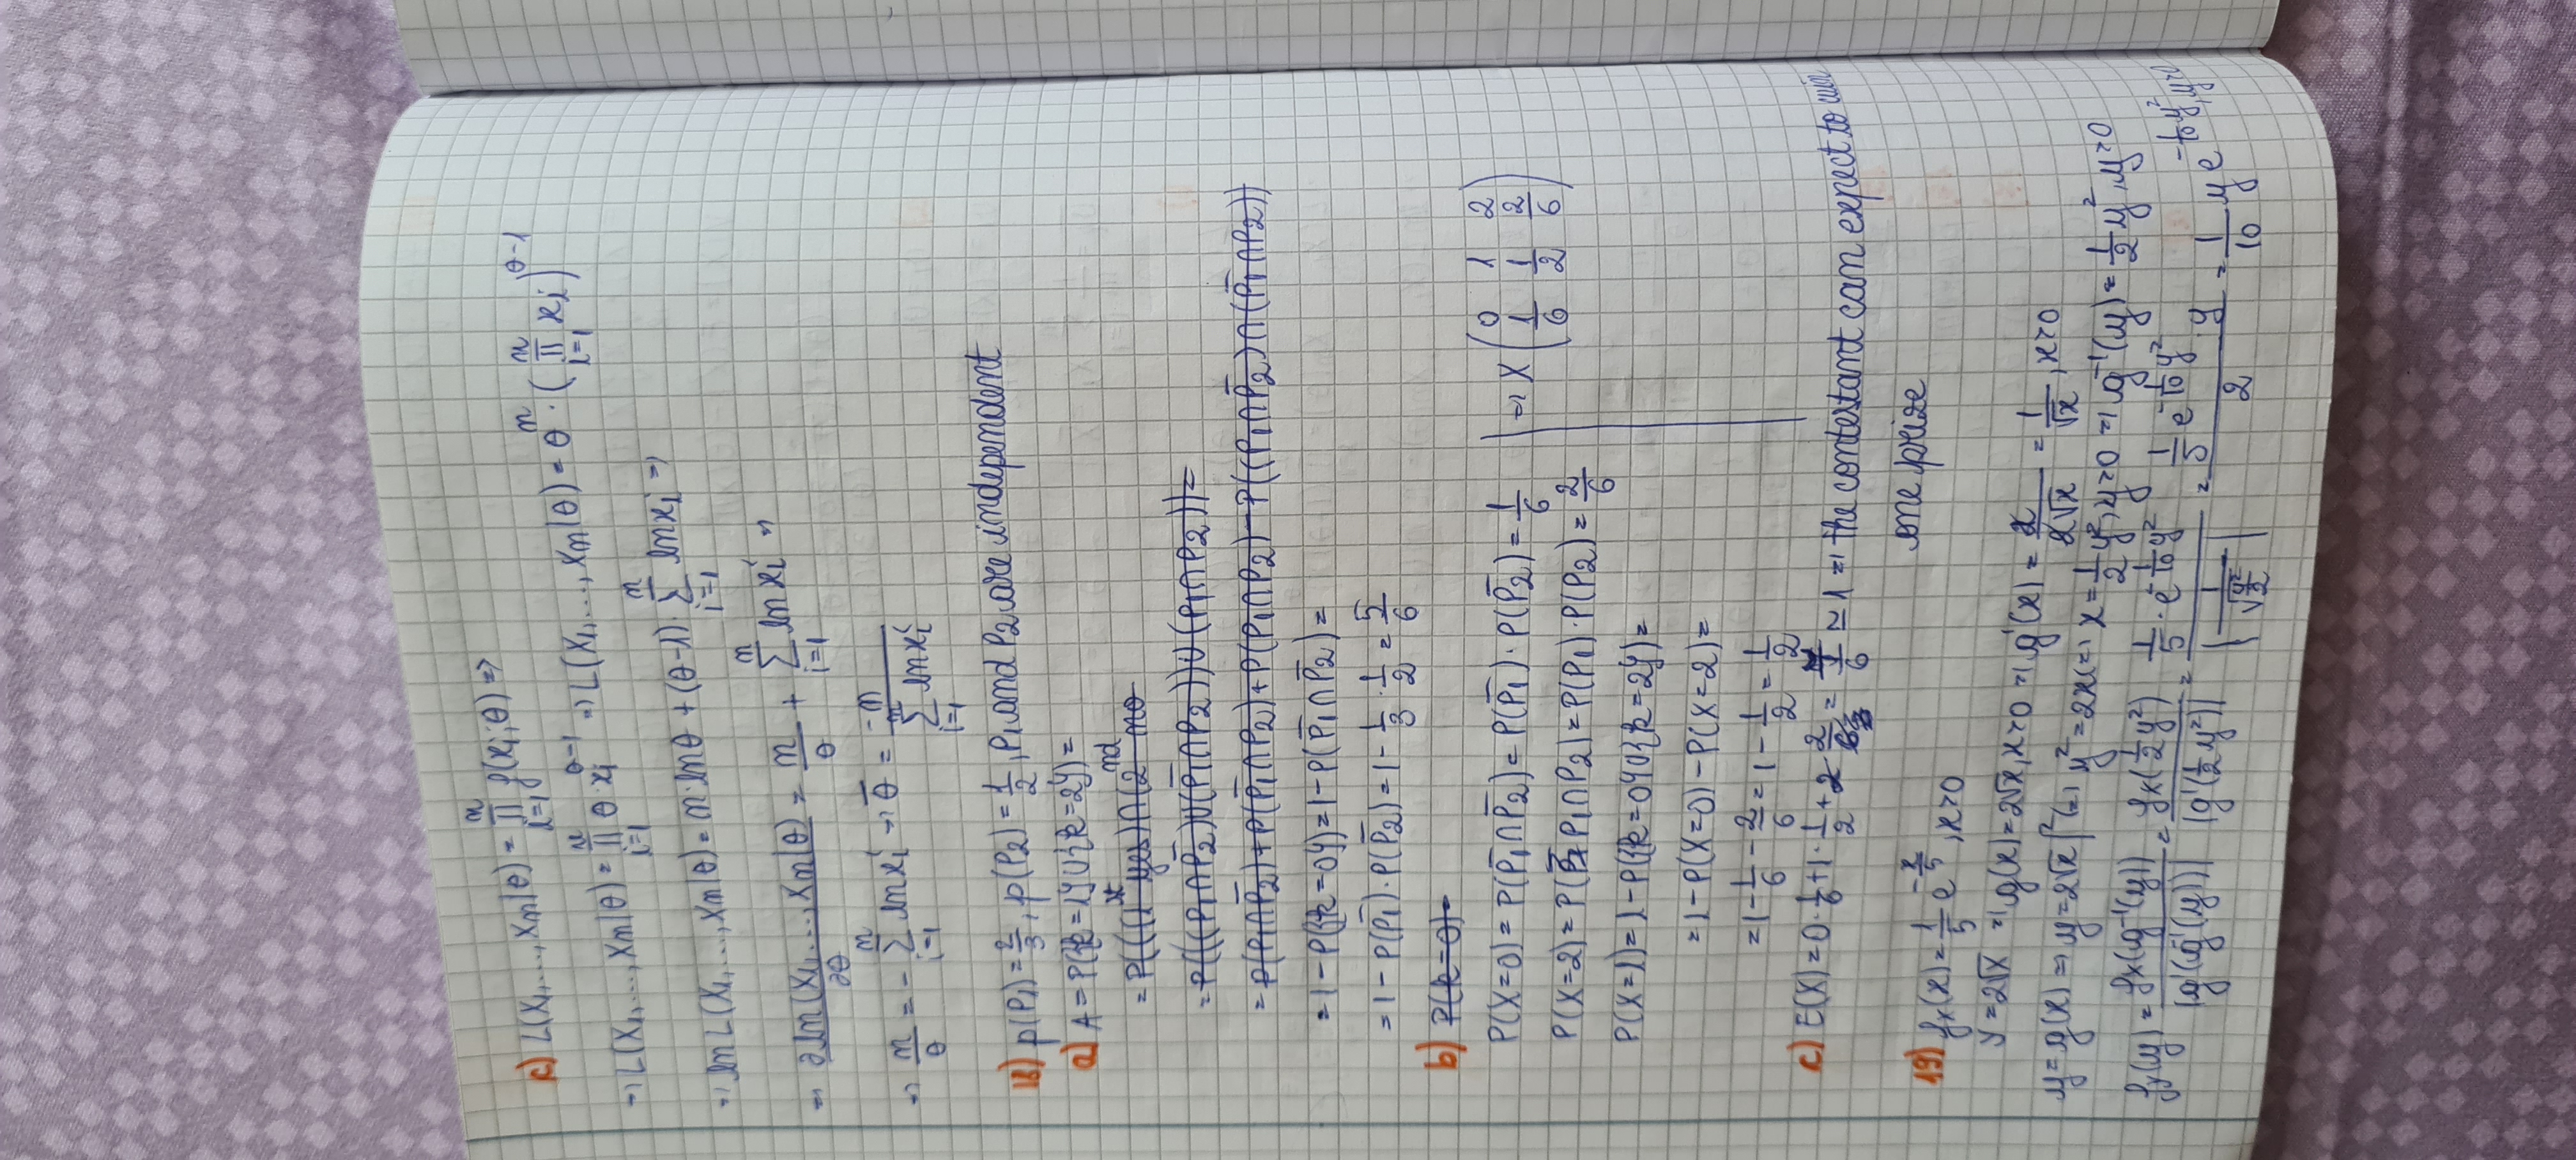 c) L(x₁,...,xₙ|θ) = ∏ᵢ₌₁ⁿ f(xᵢ;θ) =>
=> L(x₁,...,xₙ|θ) = ∏ᵢ₌₁ⁿ θ·xᵢ^(θ-1) => L(x₁,...,xₙ|θ) = θⁿ·(∏ᵢ₌₁ⁿ xᵢ)^(θ-1)
=> ln L(x₁,...,xₙ|θ) = n·lnθ + (θ-1)·∑ᵢ₌₁ⁿ ln xᵢ =>
=> ∂ln(x₁,...,xₙ|θ)/∂θ = n/θ + ∑ᵢ₌₁ⁿ ln xᵢ =>
=> n/θ = -∑ᵢ₌₁ⁿ ln xᵢ => θ̄ = -n/∑ᵢ₌₁ⁿ ln xᵢ
18) p(P₁) = 2/3, p(P₂) = 1/2, P₁ and P₂ are independent
a) A = P({k=1}∪{k=2}) =
= P(((1st yes)∩(2nd no
= P(((P₁∩P̄₂)∪(P̄₁∩P₂))∪(P₁∩P₂)) =
= P(P₁∩P̄₂)+P(P̄₁∩P₂)+P(P₁∩P₂)-P((P₁∩P̄₂)∩(P̄₁∩P₂))
= 1-P({k=0}) = 1-P(P̄₁∩P̄₂) =
= 1-P(P̄₁)·P(P̄₂) = 1-1/3·1/2 = 5/6
b) P(k=0)=
P(X=0) = P(P̄₁∩P̄₂) = P(P̄₁)·P(P̄₂) = 1/6 => X (0 1 2 / 1/6 1/2 2/6)
P(X=2) = P(P₁∩P₂) = P(P₁)·P(P₂) = 2/6
P(X=1) = 1-P({k=0}∪{k=2}) =
= 1-P(X=0)-P(X=2) =
= 1-1/6-2/6 = 1-1/2 = 1/2
c) E(X) = 0·1/6+1·1/2+2·2/6 = 7/6 ≃ 1 => the contestant can expect to win
one prize
19) fₓ(x) = 1/5 e^(-x/5), x>0
Y = 2√X => g(x) = 2√x, x>0 => g'(x) = 2/(2√x) = 1/√x, x>0
y = g(x) => y = 2√x |² (=) y² = 2x (=) x = 1/2 y², y>0 => g⁻¹(y) = 1/2 y², y>0
fᵧ(y) = fₓ(g⁻¹(y))/|g'(g⁻¹(y))| = fₓ(1/2 y²)/|g'(1/2 y²)| = (1/5·e^(-1/10 y²))/|1/√(y²/2)| = (1/5 e^(-1/10 y²)·y)/2 = 1/10 y e^(-1/10 y²), y>0